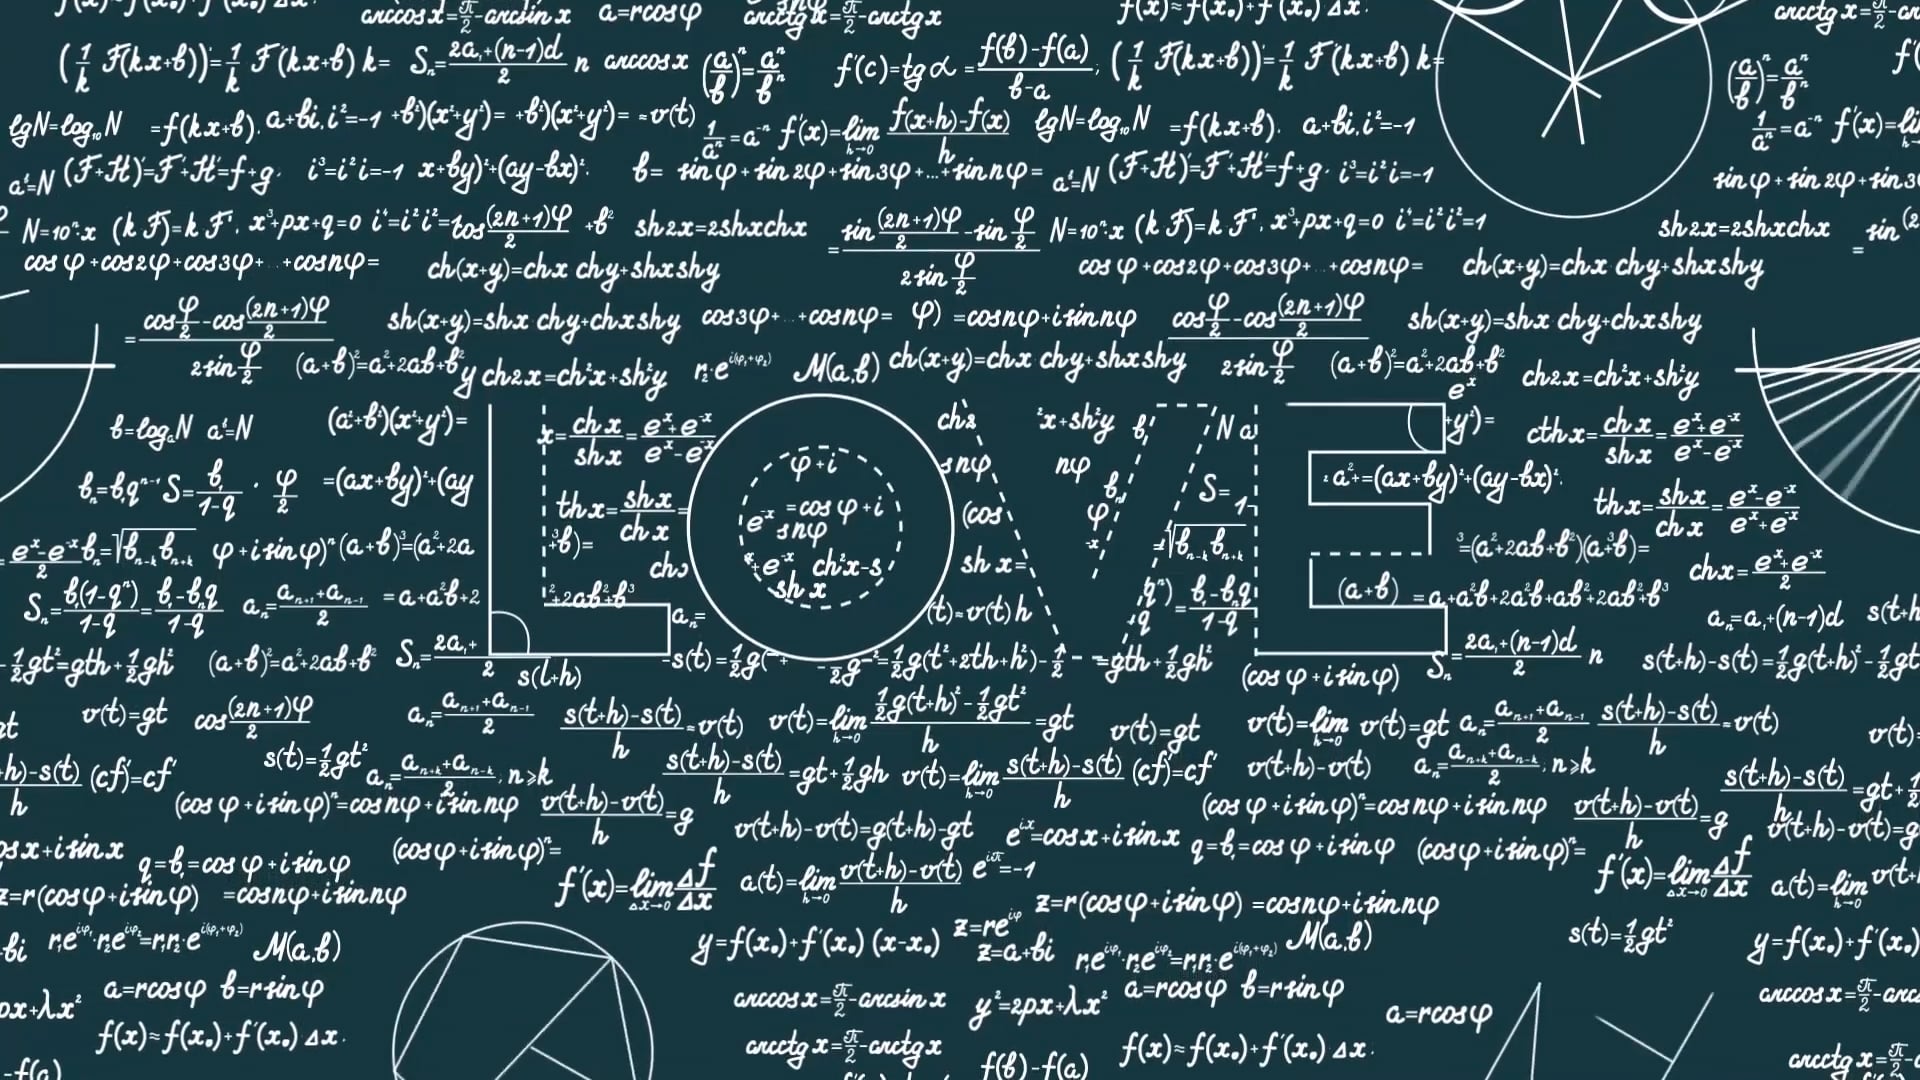 arccos x = π/2 - arcsin x a=rcosφ arcctg x = π/2 - arctg x f(x)≈f(x₀)+f'(x₀)Δx.
(1/k F(kx+b))'=1/k F'(kx+b) k= Sₙ=2a₁+(n-1)d/2 n arccos x (a/b)ⁿ=aⁿ/bⁿ f'(c)=tgα=f(b)-f(a)/b-a; (1/k F(kx+b))'=1/k F'(kx+b) k= (a/b)ⁿ=aⁿ/bⁿ
lgN=log₁₀N =f(kx+b). a+bi,i²=-1 +b²)(x²+y²)= +b²)(x²+y²)= ≈v(t) 1/aⁿ=a⁻ⁿ f'(x)=lim h→0 f(x+h)-f(x)/h lgN=log₁₀N =f(kx+b). a+bi,i²=-1 1/aⁿ=a⁻ⁿ
(F+H)'=F'+H'=f+g. i³=i²i=-1 x+by)²+(ay-bx)². b= sinφ+sin2φ+sin3φ+...+sinnφ= (F+H)'=F'+H'=f+g. i³=i²i=-1
N=10ⁿ·x (kF)'=kF'. x³+px+q=0 i⁴=i²i²= (2n+1)φ/2 +b² sh2x=2shxchx = sin(2n+1)φ/2 - sin φ/2 / 2sin φ/2 N=10ⁿ·x (kF)'=kF'. x³+px+q=0 i⁴=i²i²=1 sh2x=2shxchx
cosφ+cos2φ+cos3φ+...+cosnφ= ch(x+y)=chx chy+shxshy cosφ+cos2φ+cos3φ+...+cosnφ= ch(x+y)=chx chy+shxshy
= cos φ/2 - cos(2n+1)φ/2 / 2sin φ/2 sh(x+y)=shx chy+chxshy cos3φ+...+cosnφ= φ) =cosnφ+isinnφ cos φ/2 - cos(2n+1)φ/2 / 2sin φ/2 sh(x+y)=shx chy+chxshy
(a+b)²=a²+2ab+b² y ch2x=ch²x+sh²y M(a,b) ch(x+y)=chx chy+shxshy (a+b)²=a²+2ab+b² eˣ ch2x=ch²x+sh²y
LOVE
b=logₐN (a²+b²)(x²+y²)= x=chx/shx=eˣ+e⁻ˣ/eˣ-e⁻ˣ ch2 ²x+sh²y Na y²)= cthx=chx/shx=eˣ+e⁻ˣ/eˣ-e⁻ˣ
bₙ=b₁qⁿ⁻¹ S=b₁/1-q · φ/2 =(ax+by)²+(ay φ+i nφ S= a²+=(ax+by)²+(ay-bx)².
thx=shx/chx= =cosφ+i (cos φ thx=shx/chx=eˣ-e⁻ˣ/eˣ+e⁻ˣ
eˣ-e⁻ˣ/2 bₙ=√bₙ₋ₖbₙ₊ₖ φ+isinφ)ⁿ (a+b)³=(a²+2a ³b)= ch²x-s shx= √bₙ₋ₖbₙ₊ₖ ³=(a²+2ab+b²)(a+b)= chx=eˣ+e⁻ˣ/2
Sₙ=b₁(1-qⁿ)/1-q=b₁-bₙq/1-q aₙ=aₙ₊₁+aₙ₋₁/2 shx aₙ= (t)≈v(t)h =b₁-bₙq/1-q (a+b) aₙ=a₁+(n-1)d
-½gt²=gth+½gh² (a+b)²=a²+2ab+b² Sₙ=2a₁+/2 s(t+h) -s(t)=½g( =½g(t²+2th+h²)- =gth+½gh² (cosφ+isinφ) Sₙ=2a₁+(n-1)d/2 n s(t+h)-s(t)=½g(t+h)²-½gt
v(t)=gt cos(2n+1)φ/2 aₙ=aₙ₊₁+aₙ₋₁/2 s(t+h)-s(t)/h≈v(t) v(t)=lim h→0 ½g(t+h)²-½gt²/h=gt v(t)=gt v(t)=lim h→0 v(t)=gt aₙ=aₙ₊₁+aₙ₋₁/2 s(t+h)-s(t)/h≈v(t)
h)-s(t)/h (cf)'=cf' s(t)=½gt² aₙ=aₙ₊ₖ+aₙ₋ₖ/2; n≥k s(t+h)-s(t)/h=gt+½gh v(t)=lim h→0 s(t+h)-s(t)/h (cf)'=cf' v(t+h)-v(t) aₙ=aₙ₊ₖ+aₙ₋ₖ/2; n≥k s(t+h)-s(t)/h=gt+
(cosφ+isinφ)ⁿ=cosnφ+isinnφ v(t+h)-v(t)/h=g v(t+h)-v(t)=g(t+h)-gt e^ix=cosx+isinx (cosφ+isinφ)ⁿ=cosnφ+isinnφ v(t+h)-v(t)/h=g v(t+h)-v(t)=g
osx+isinx q=b₁=cosφ+isinφ (cosφ+isinφ)ⁿ= q=b₁=cosφ+isinφ (cosφ+isinφ)ⁿ=
z=r(cosφ+isinφ) =cosnφ+isinnφ f'(x)=lim Δx→0 Δf/Δx a(t)=lim h→0 v(t+h)-v(t)/h e^iπ=-1 z=re^iφ z=r(cosφ+isinφ) =cosnφ+isinnφ f'(x)=lim Δx→0 Δf/Δx a(t)=lim h→0
bi r₁e^iφ₁·r₂e^iφ₂=r₁r₂·e^i(φ₁+φ₂) M(a,b) y=f(x₀)+f'(x₀)(x-x₀) z=a+bi r₁e^iφ₁·r₂e^iφ₂=r₁r₂·e^i(φ₁+φ₂) M(a,b) s(t)=½gt² y=f(x₀)+f'(x₀)
px+λx² a=rcosφ b=rsinφ arccos x=π/2-arcsin x y²=2px+λx² a=rcosφ b=rsinφ a=rcosφ arccos x=π/2-arc
f(x)≈f(x₀)+f'(x₀)Δx. arcctg x=π/2-arctg x f(b)-f(a) f(x)≈f(x₀)+f'(x₀)Δx. arcctg x=π/2-
-f(a)